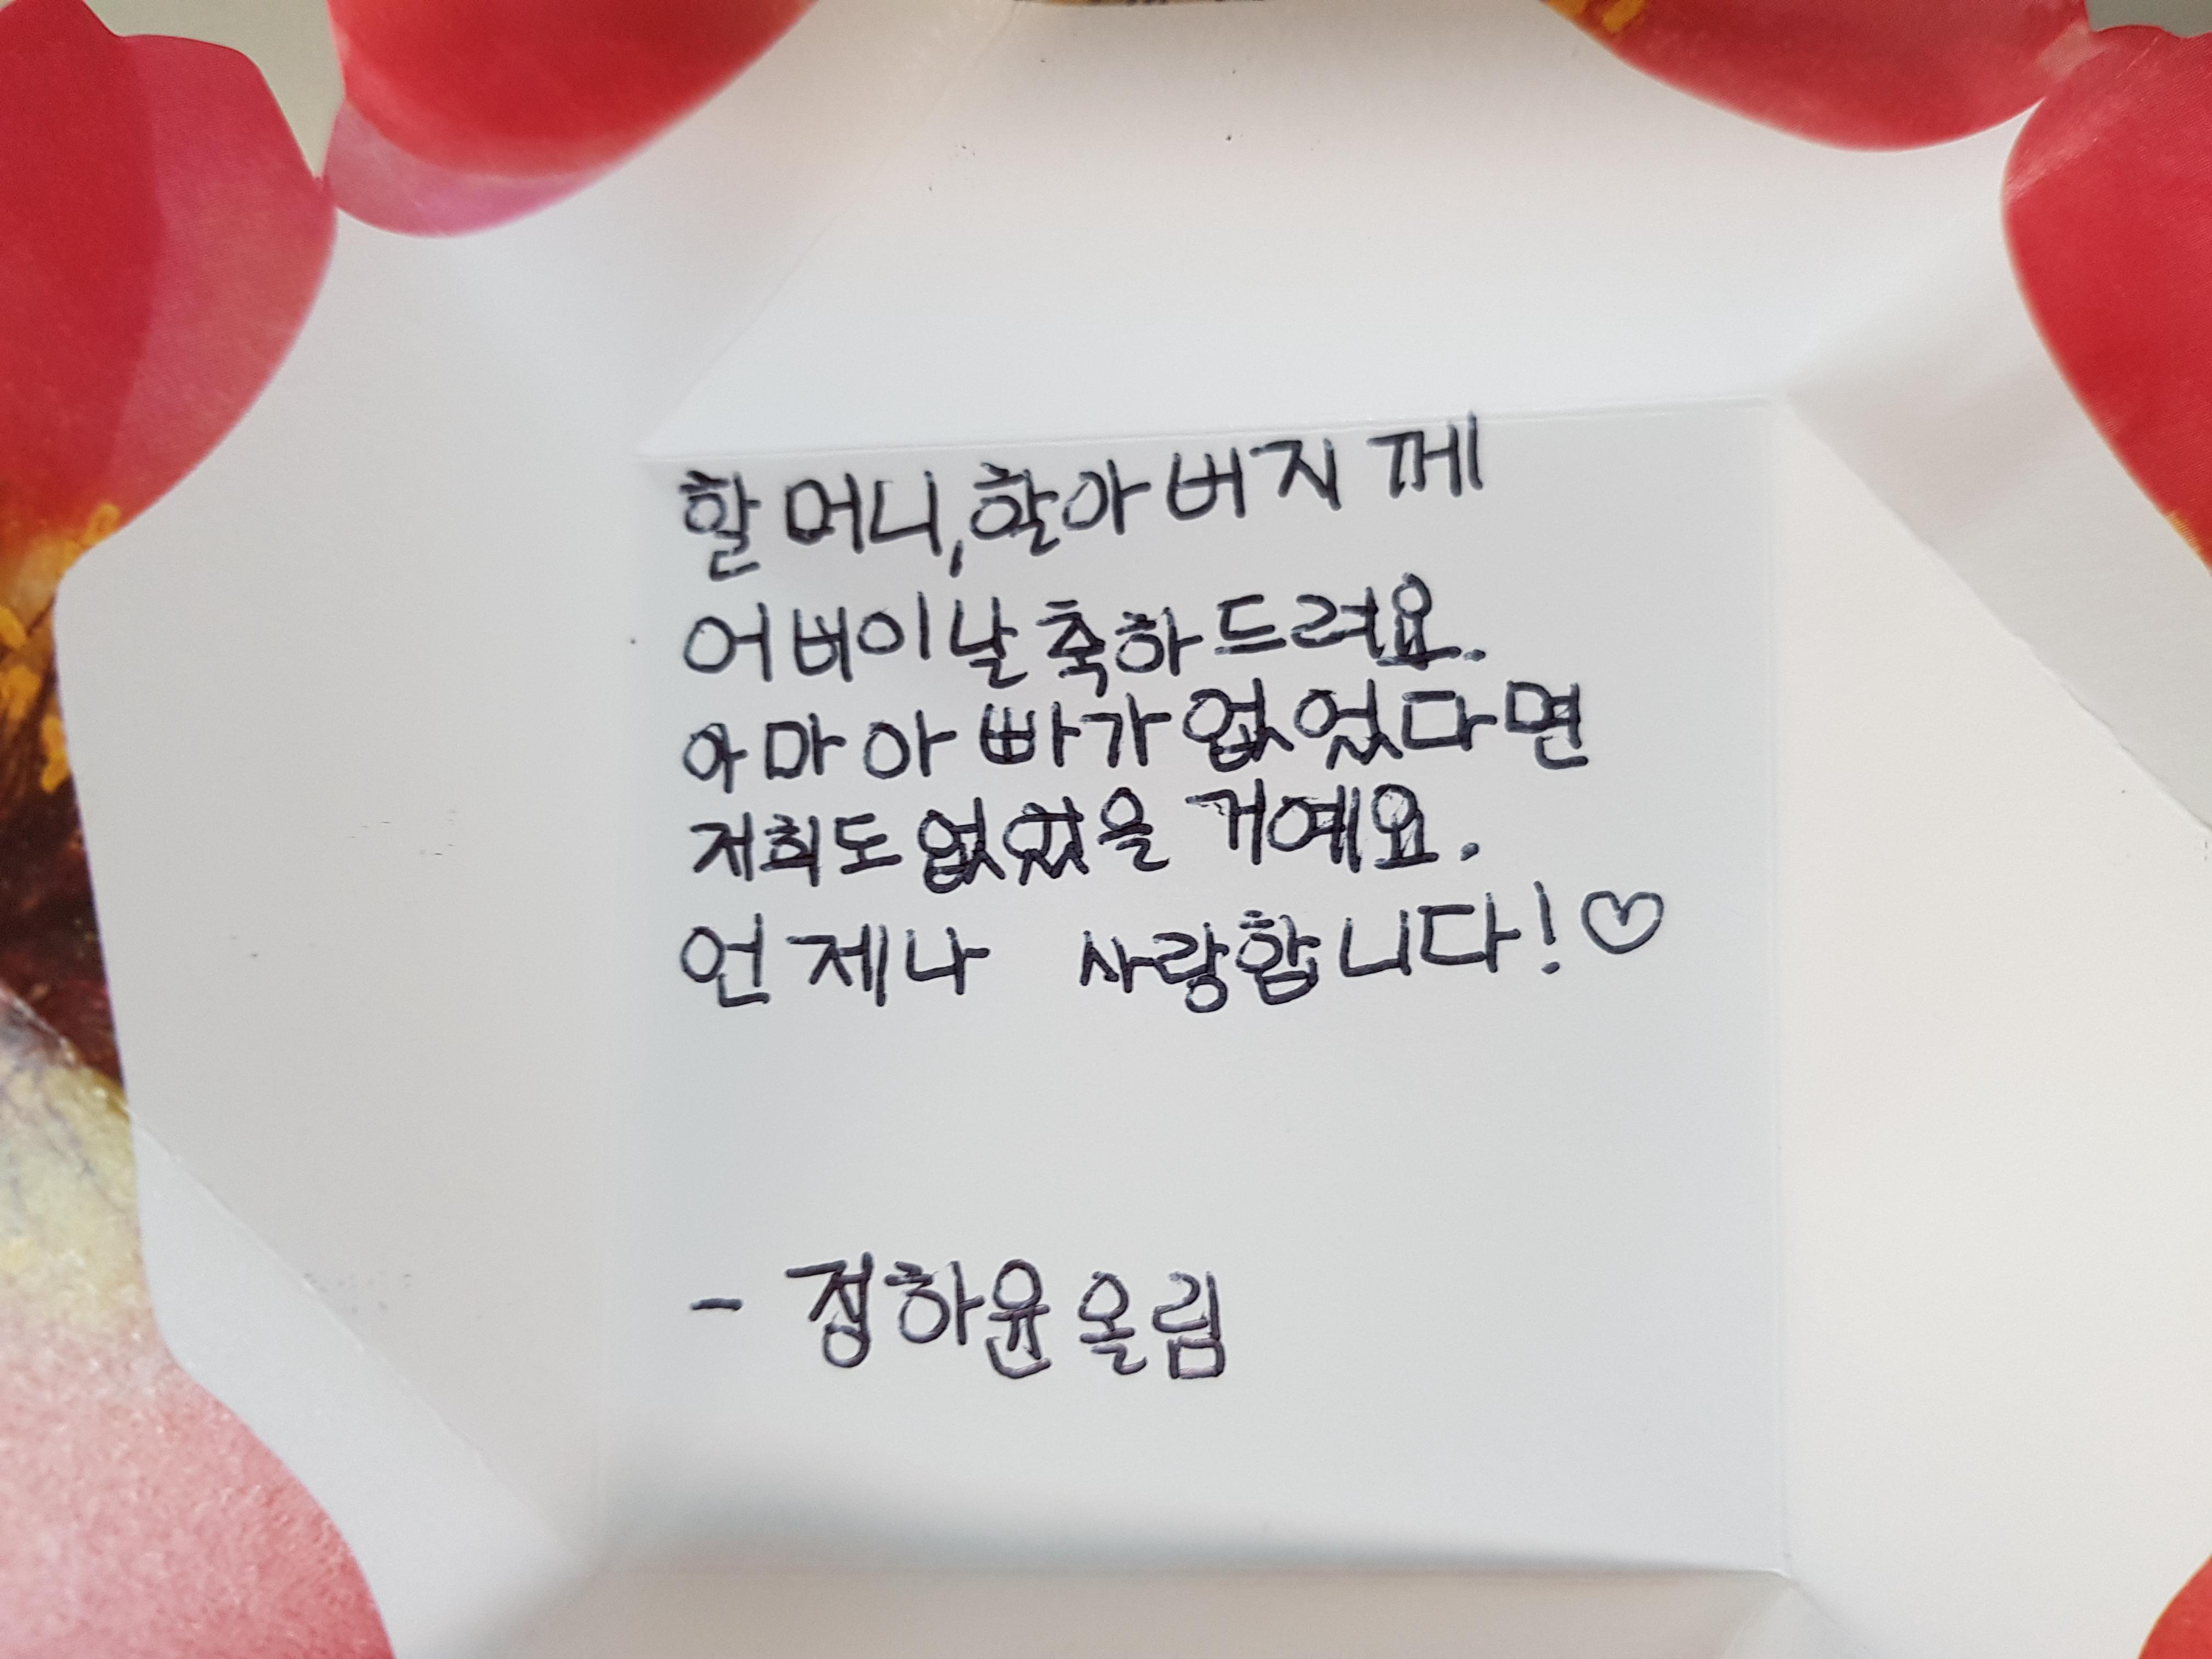 할머니, 할아버지께
어버이날 축하드려요.
아마 아빠가 없었다면
저희도 없었을 거예요.
언제나 사랑합니다!♡
- 정하윤 올림